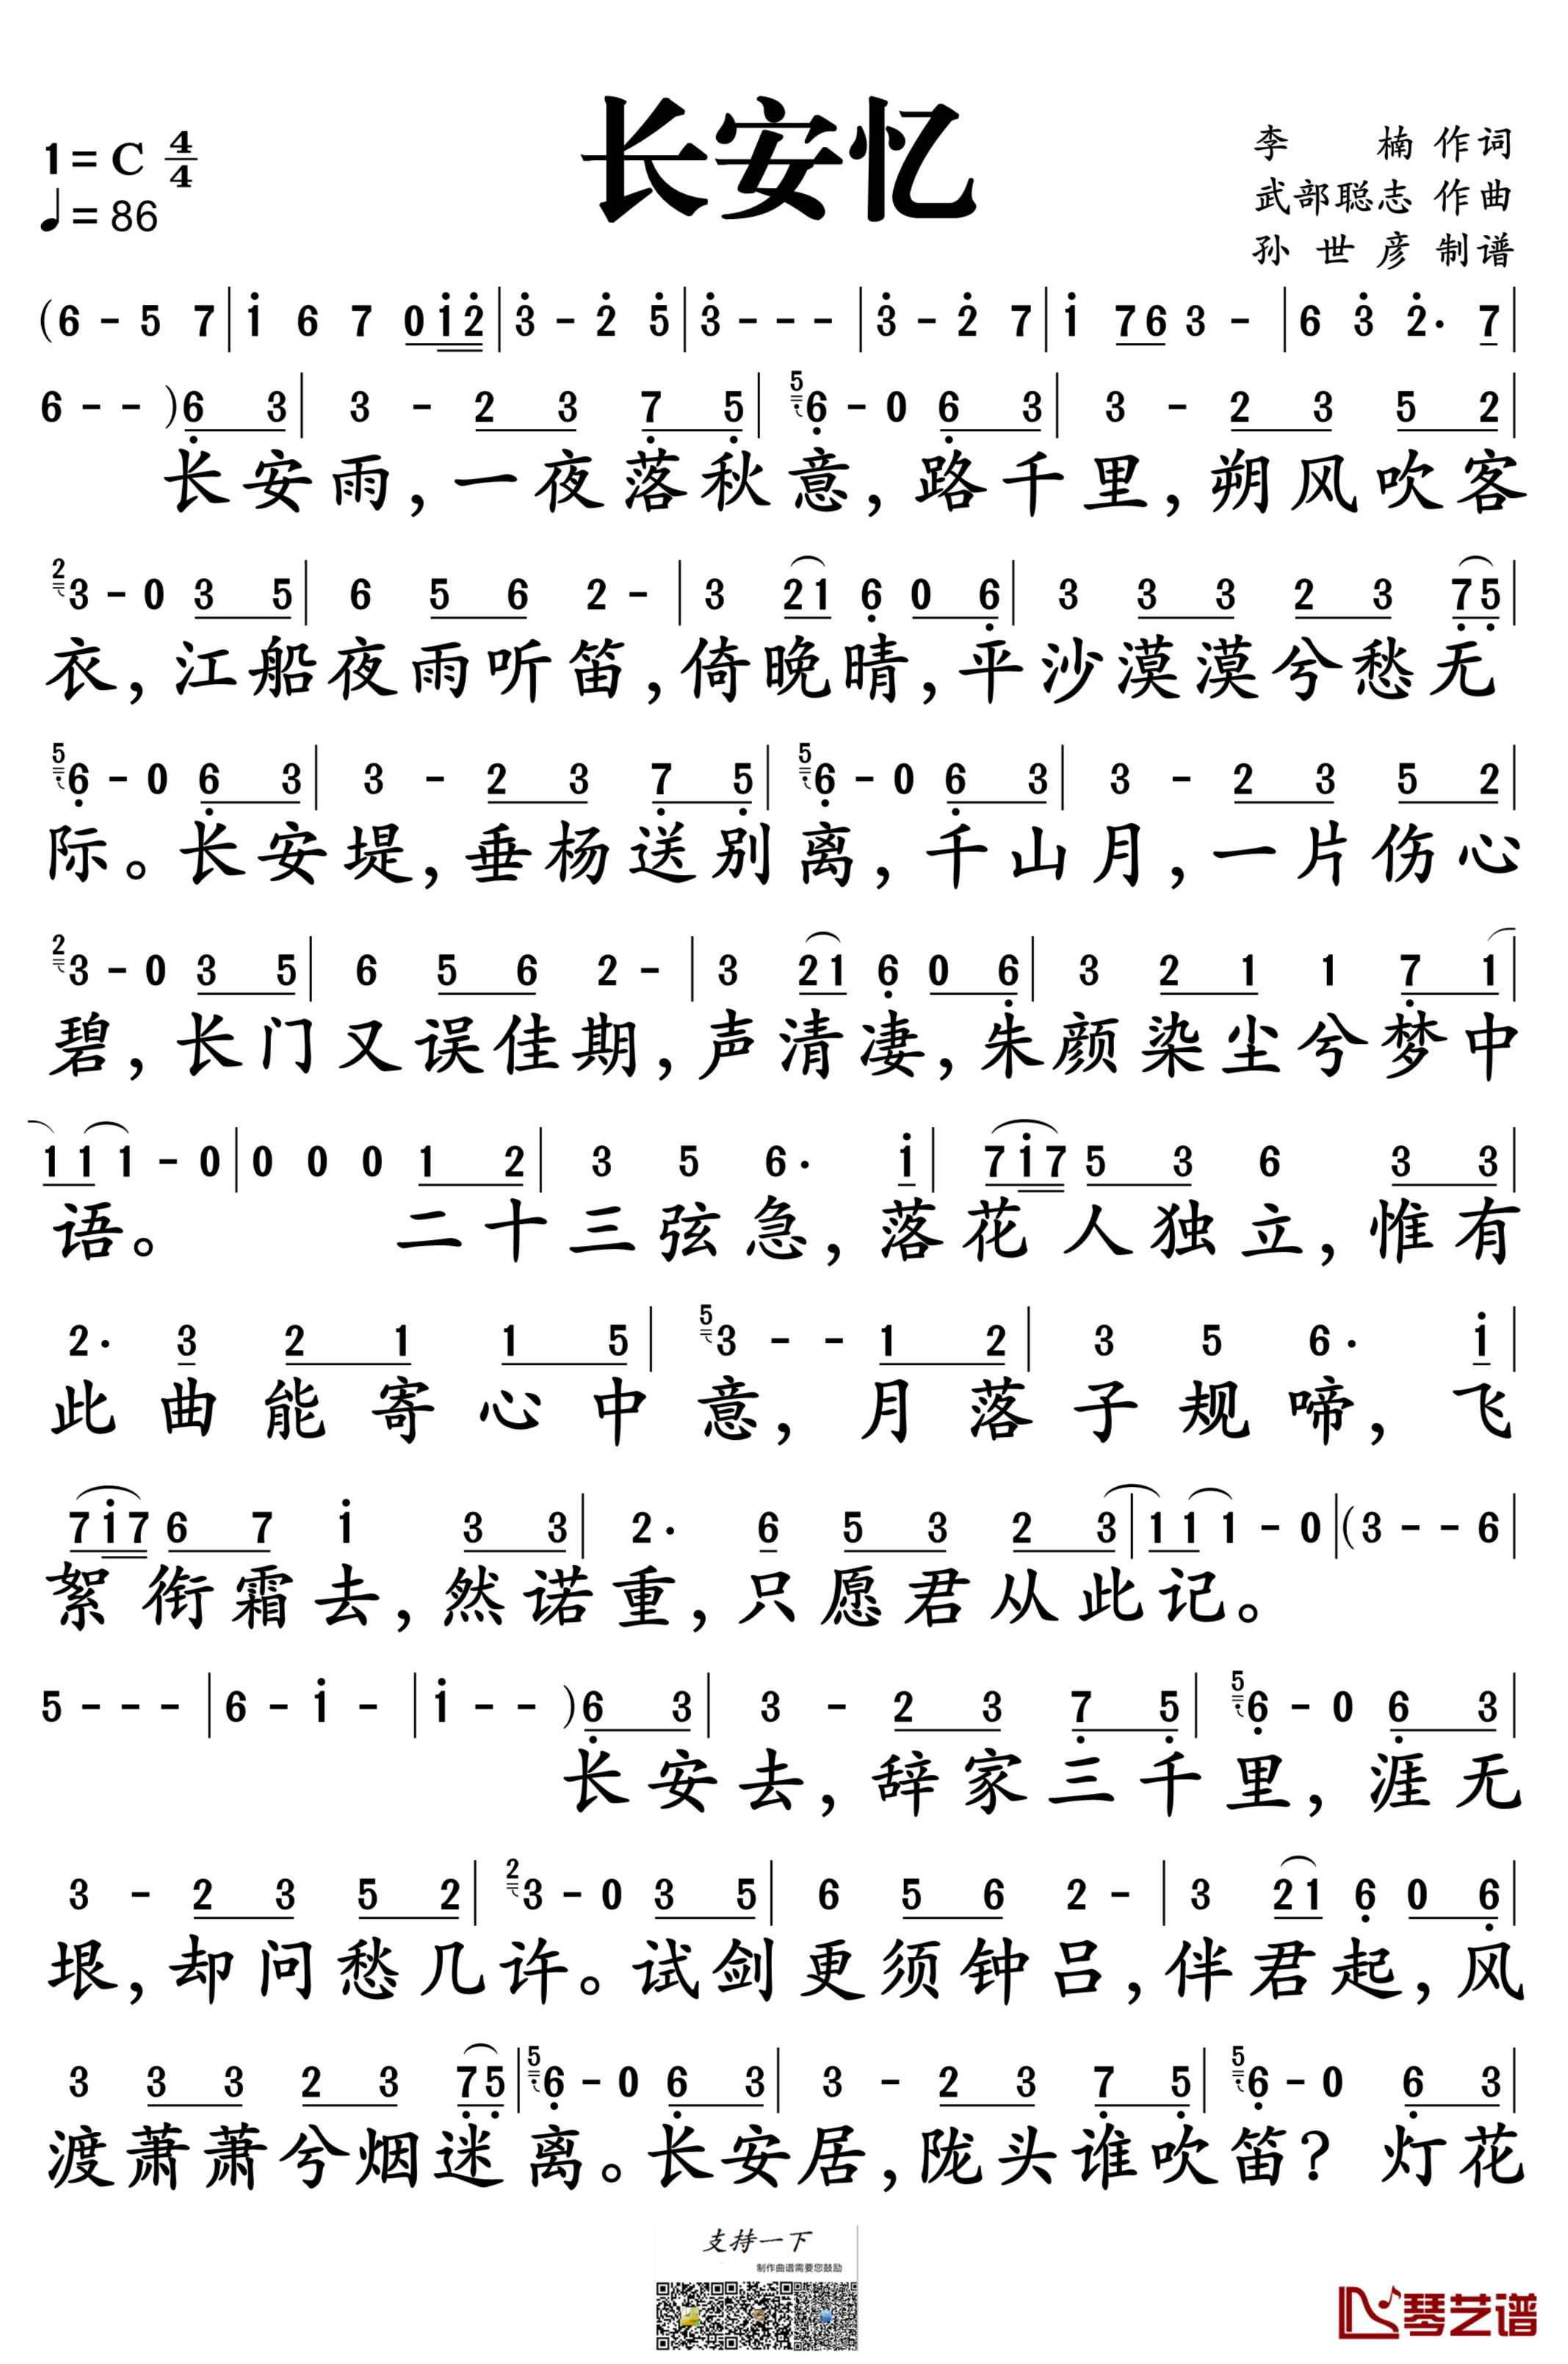 长安忆
1=C 4/4
♩=86
李 楠 作词
武部聪志 作曲
孙世彦 制谱
(6 - 5 7 | i 6 7 0 i 2̇ | 3̇ - 2̇ 5̇ | 3̇ - - - | 3̇ - 2̇ 7 | i 7 6 3 - | 6 3̇ 2̇· 7 |
6 - - ) 6̣ 3 | 3 - 2 3 7̣ 5̣ | 5 6̣ - 0 6̣ 3 | 3 - 2 3 5 2 |
长安雨，一夜落秋意，路千里，朔风吹客
2 3 - 0 3 5 | 6 5 6 2 - | 3 2 1 6̣ 0 6̣ | 3 3 3 2 3 7̣ 5̣ |
衣，江船夜雨听笛，倚晚晴，平沙漠漠兮愁无
5 6̣ - 0 6̣ 3 | 3 - 2 3 7̣ 5̣ | 5 6̣ - 0 6̣ 3 | 3 - 2 3 5 2 |
际。长安堤，垂杨送别离，千山月，一片伤心
2 3 - 0 3 5 | 6 5 6 2 - | 3 2 1 6̣ 0 6̣ | 3 2 1 1 7̣ 1 |
碧，长门又误佳期，声清凄，朱颜染尘兮梦中
1 1 1 - 0 | 0 0 0 1 2 | 3 5 6· i | 7 i 7 5 3 6 3 3 |
语。 二十三弦急，落花人独立，惟有
2· 3 2 1 1 5 | 5 3 - - 1 2 | 3 5 6· i |
此曲能寄心中意，月落子规啼，飞
7 i 7 6 7 i 3 3 | 2· 6 5 3 2 3 | 1 1 1 - 0 | (3 - - 6 |
絮衔霜去，然诺重，只愿君从此记。
5 - - - | 6 - i - | i - - ) 6̣ 3 | 3 - 2 3 7̣ 5̣ | 5 6̣ - 0 6̣ 3 |
长安去，辞家三千里，涯无
3 - 2 3 5 2 | 2 3 - 0 3 5 | 6 5 6 2 - | 3 2 1 6̣ 0 6̣ |
垠，却问愁几许。试剑更须钟吕，伴君起，风
3 3 3 2 3 7̣ 5̣ | 5 6̣ - 0 6̣ 3 | 3 - 2 3 7̣ 5̣ | 5 6̣ - 0 6̣ 3 |
渡萧萧兮烟迷离。长安居，陇头谁吹笛？灯花
支持一下
制作曲谱需要您鼓励
琴艺谱